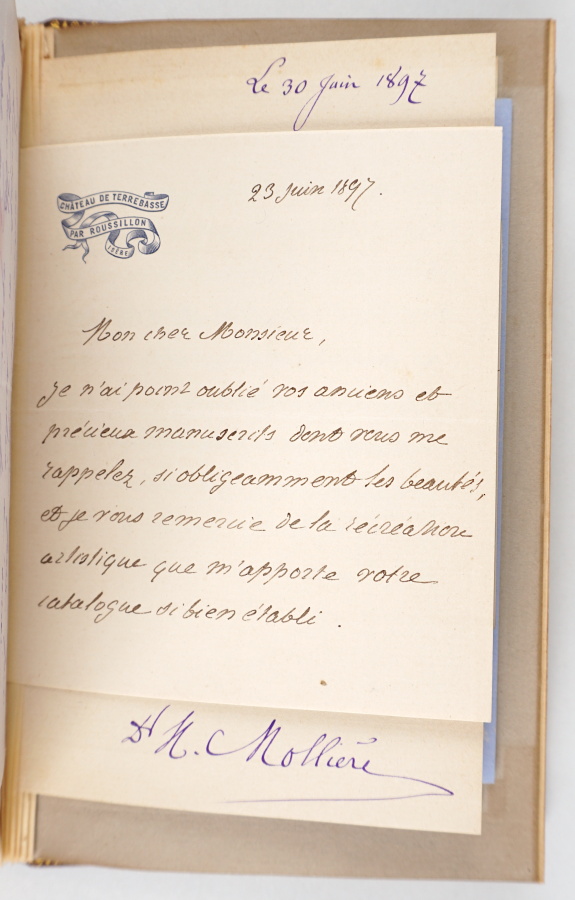 Le 30 Juin 1897
23 Juin 1897.
CHÂTEAU DE TERREBASSE
PAR ROUSSILLON
ISÈRE
Mon cher Monsieur,
je n'ai point oublié vos anciens et
précieux manuscrits dont vous me
rappelez, si obligeamment les beautés,
et je vous remercie de la récréation
artistique que m'apporte votre
catalogue si bien établi.
Dr H. Mollière